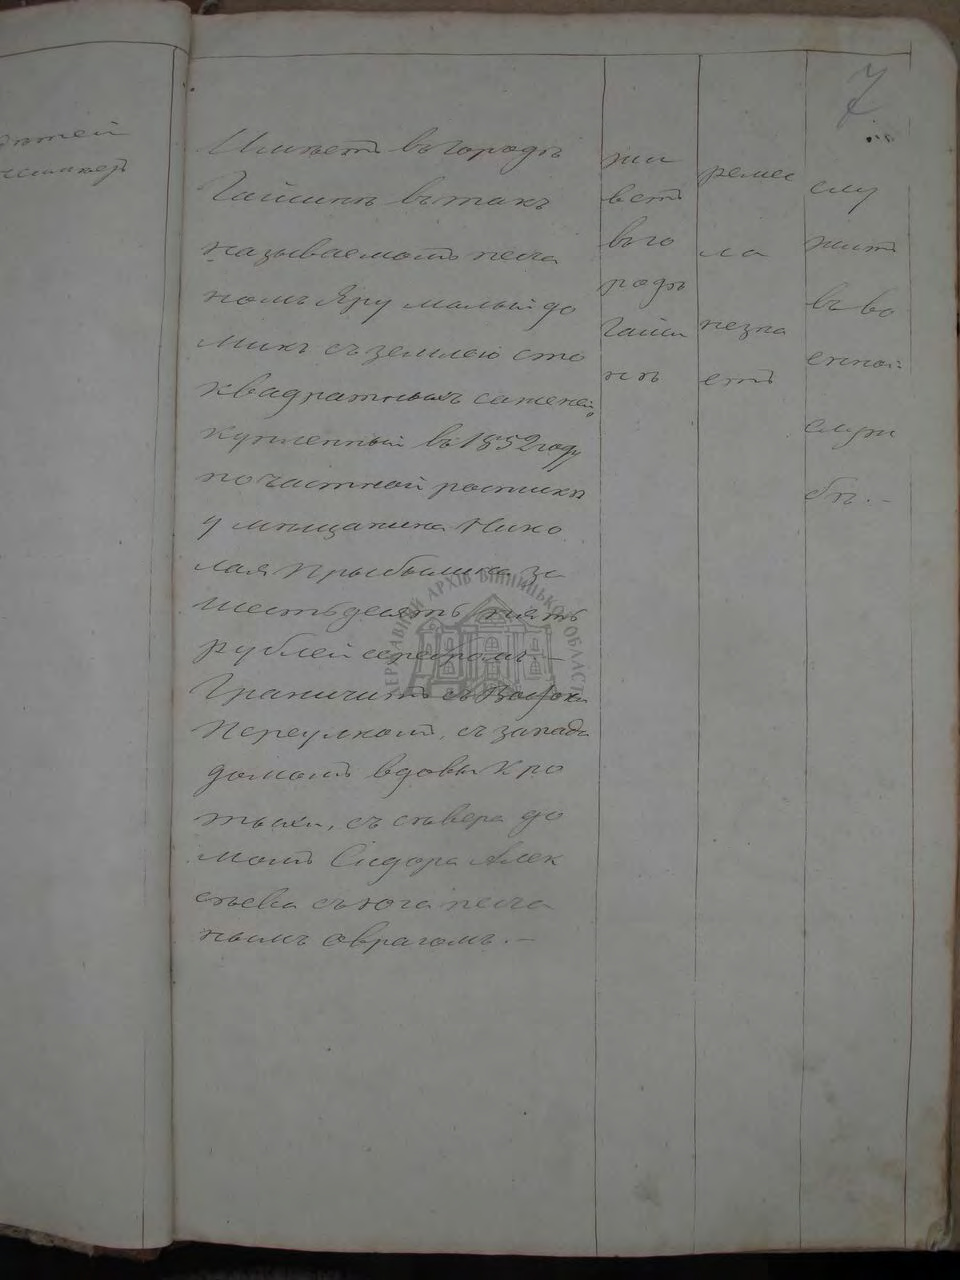 7
Имѣетъ въ городѣ
Гайсинѣ въ такъ
называемомъ песча
номъ Яру малый до
микъ съ землею сто
квадратныхъ саженей,
купленный въ 1852 году
по частной росписки
у мѣщанина Нико
лая за
шестьдесятъ пять
рублей серебромъ. —
Граничитъ съ Востока
Переулкомъ, съ запада
домомъ вдовы Кро
тыхи, съ сѣвера до
момъ Сидора Алек
сѣева съ юга песча
нымъ оврагомъ. —
жи
ветъ
въ го
родѣ
Гайси
нѣ
ремес
ла
незна
етъ
слу
житъ
въ во
енной
служ
бѣ. —
дѣтей
ДЕРЖАВНИЙ АРХІВ ВІННИЦЬКОЇ ОБЛАСТІ